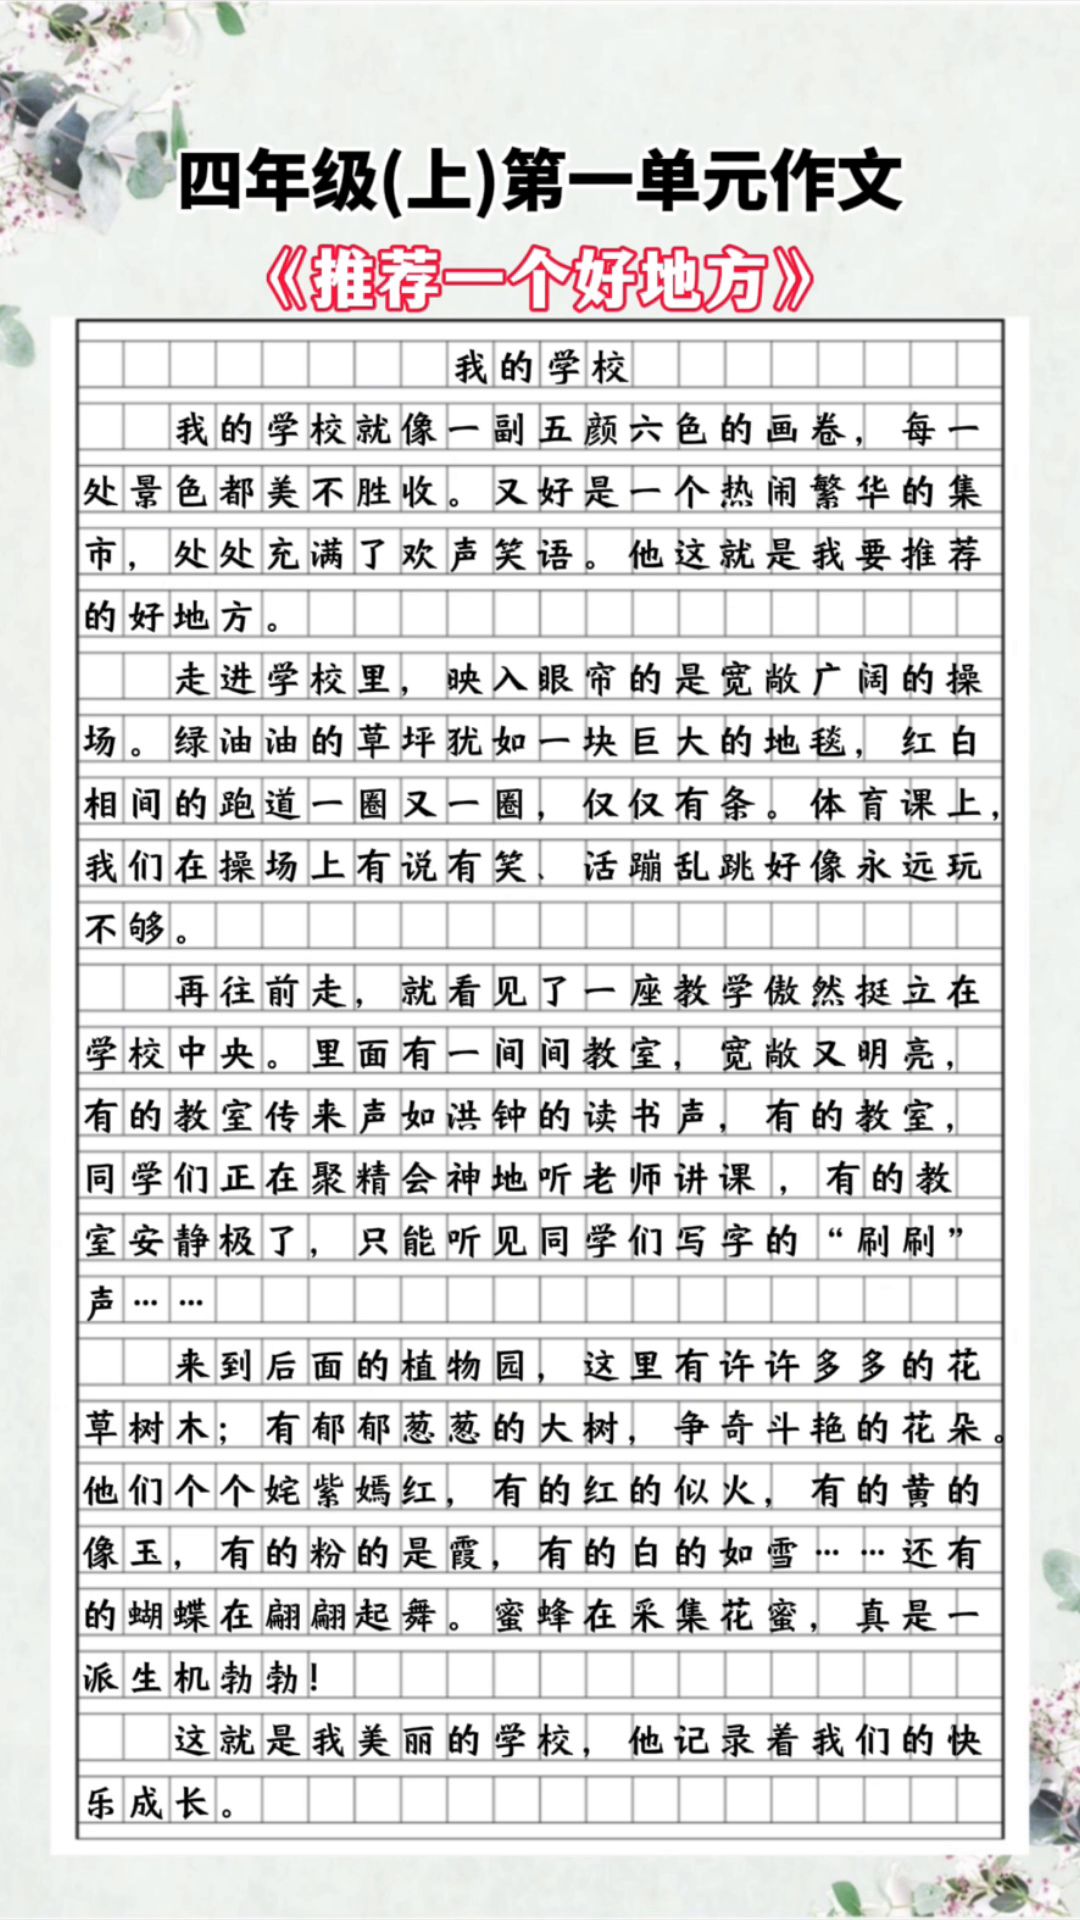 四年级(上)第一单元作文
《推荐一个好地方》
我的学校
我的学校就像一副五颜六色的画卷，每一
处景色都美不胜收。又好是一个热闹繁华的集
市，处处充满了欢声笑语。他这就是我要推荐
的好地方。
走进学校里，映入眼帘的是宽敞广阔的操
场。绿油油的草坪犹如一块巨大的地毯，红白
相间的跑道一圈又一圈，仅仅有条。体育课上，
我们在操场上有说有笑、活蹦乱跳好像永远玩
不够。
再往前走，就看见了一座教学傲然挺立在
学校中央。里面有一间间教室，宽敞又明亮，
有的教室传来声如洪钟的读书声，有的教室，
同学们正在聚精会神地听老师讲课，有的教
室安静极了，只能听见同学们写字的“刷刷”
声……
来到后面的植物园，这里有许许多多的花
草树木；有郁郁葱葱的大树，争奇斗艳的花朵。
他们个个姹紫嫣红，有的红的似火，有的黄的
像玉，有的粉的是霞，有的白的如雪……还有
的蝴蝶在翩翩起舞。蜜蜂在采集花蜜，真是一
派生机勃勃！
这就是我美丽的学校，他记录着我们的快
乐成长。